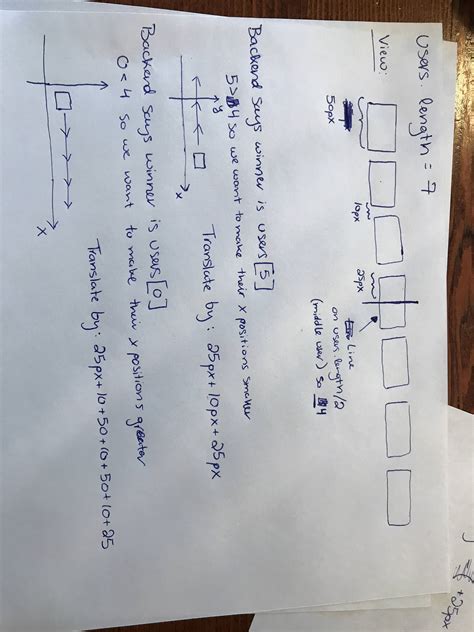 users.length = 7
View:
50px
10px
25px
Line
on users.length/2
(middle user) so 4
Backend says winner is users[5]
5 > 4 so we want to make their x positions smaller
Translate by: 25px + 10px + 25px
y
x
Backend says winner is users[0]
0 < 4 so we want to make their x positions greater
Translate by: 25px + 10 + 50 + 10 + 50 + 10 + 25
x
+25px